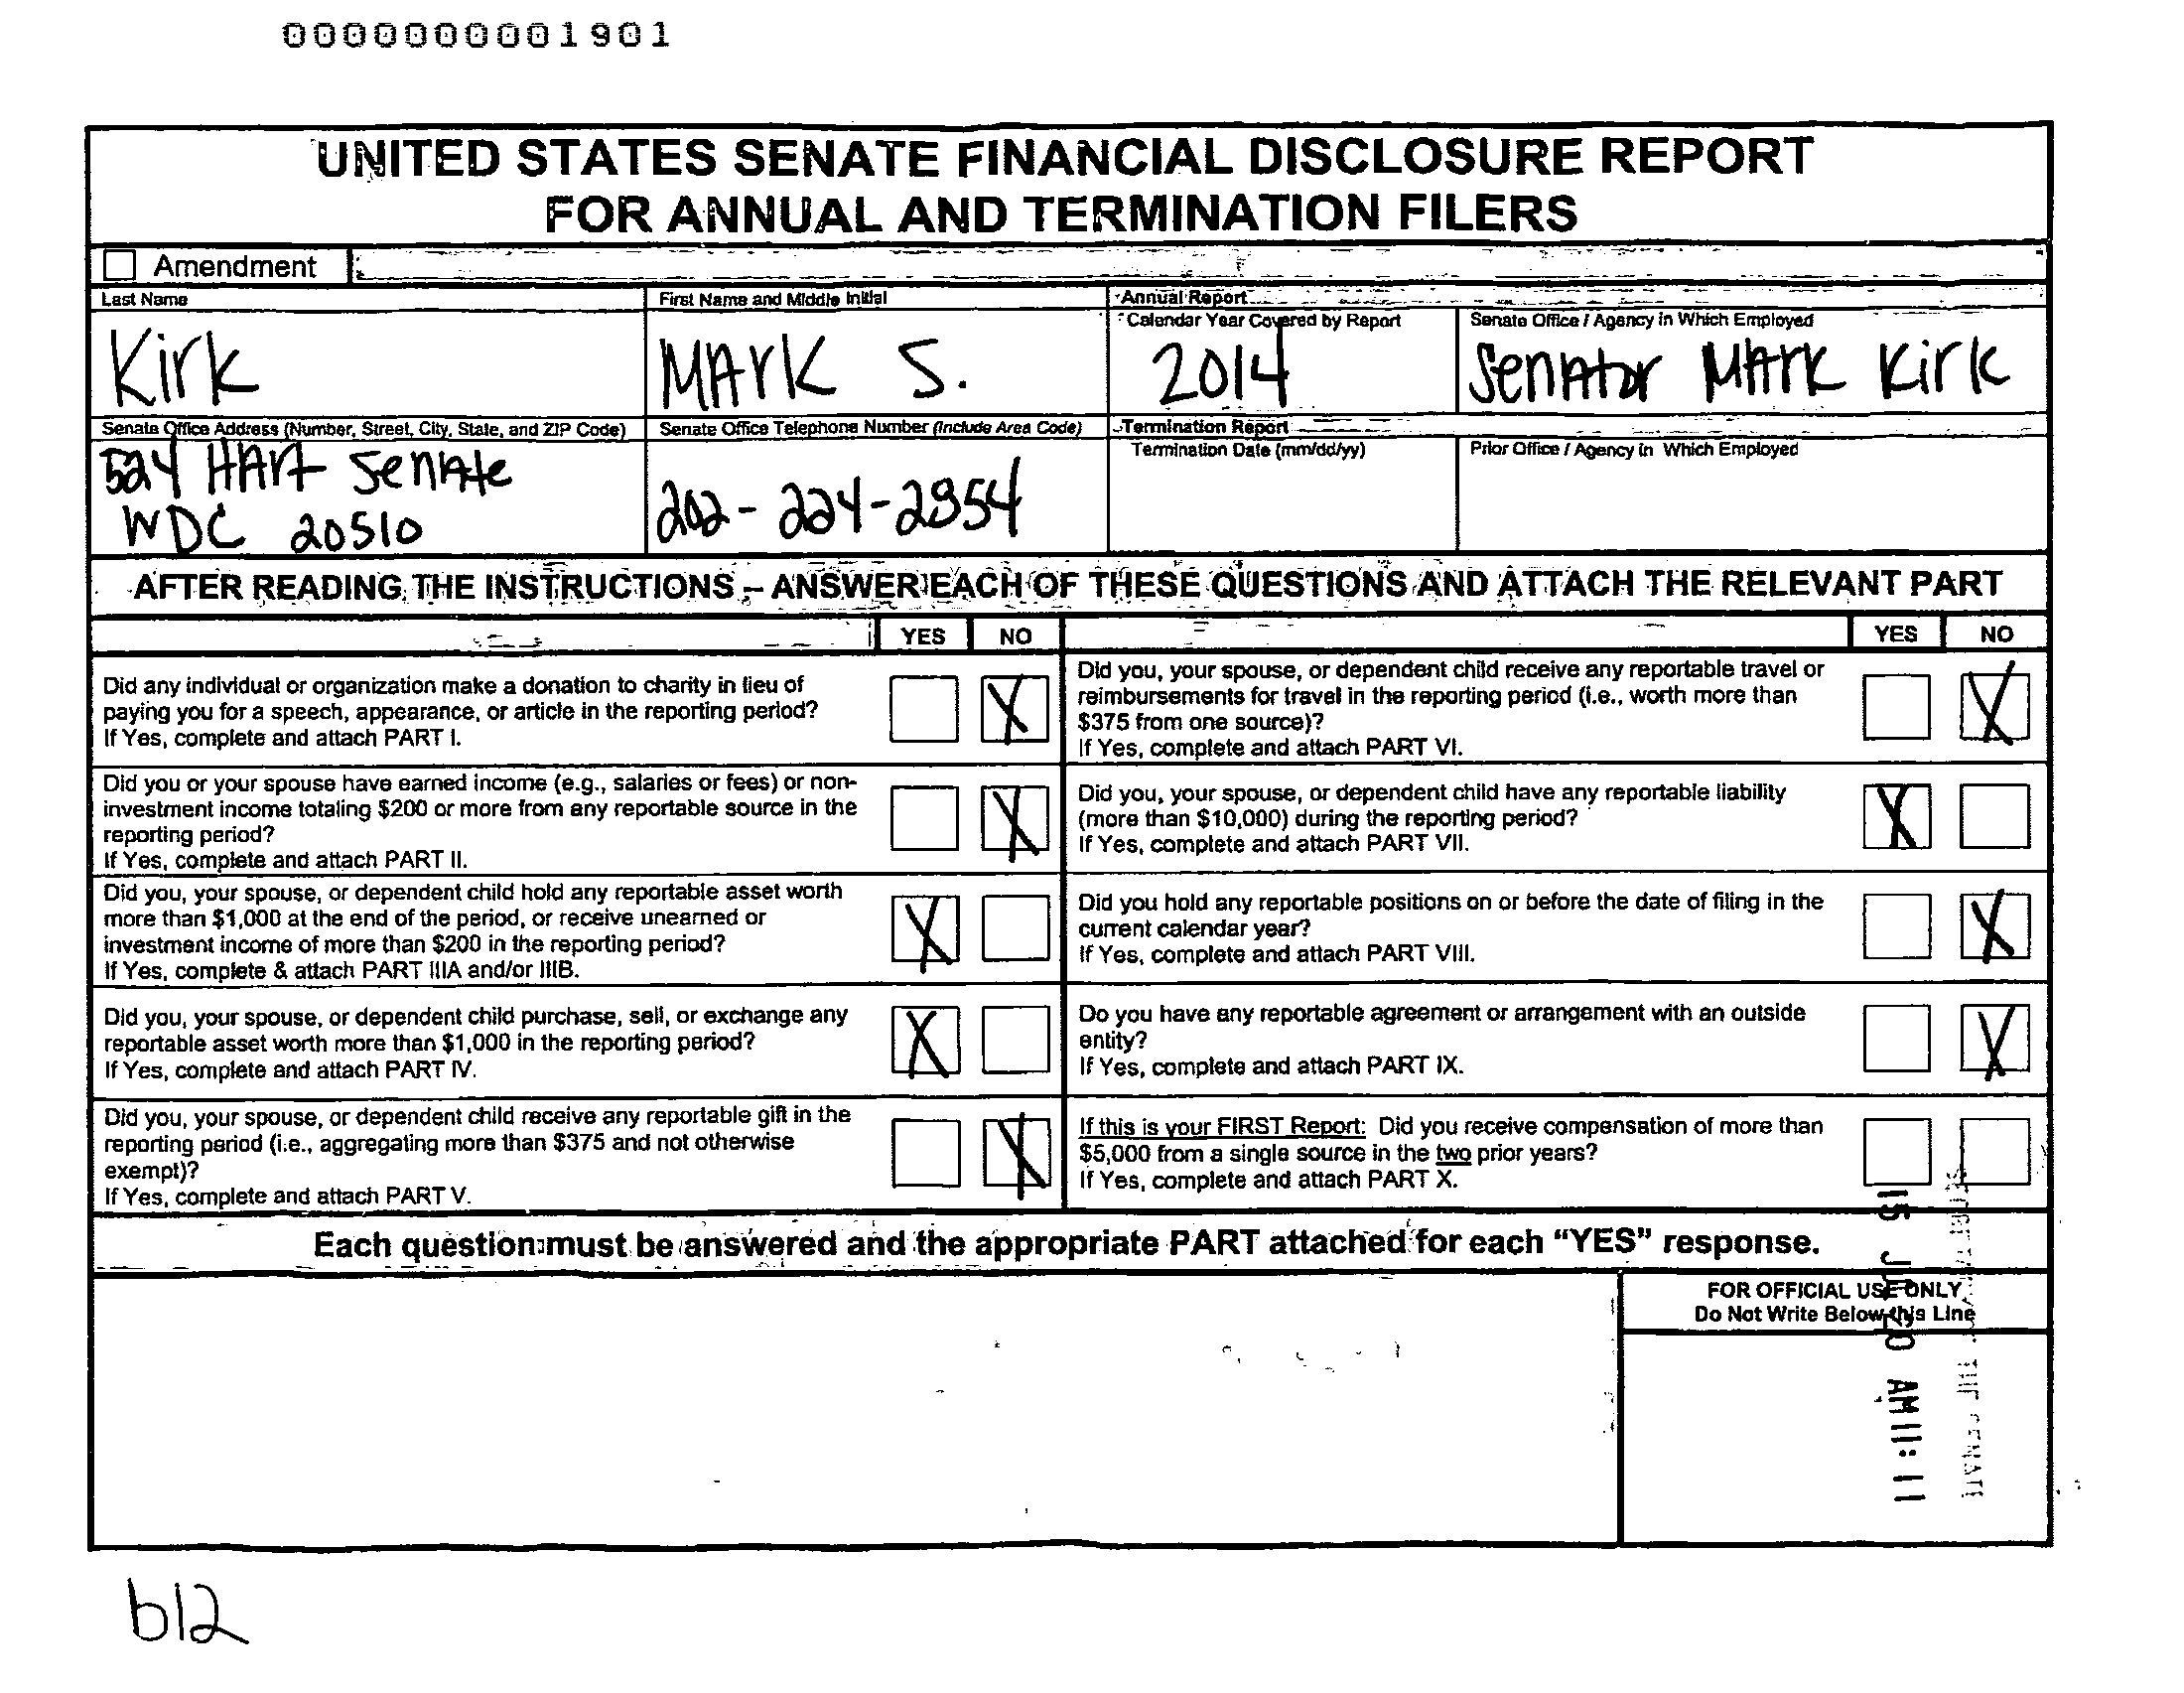 0000000001901
UNITED STATES SENATE FINANCIAL DISCLOSURE REPORT
FOR ANNUAL AND TERMINATION FILERS
Amendment
Last Name
Kirk
First Name and Middle Initial
MArK S.
Annual Report
Calendar Year Covered by Report
2014
Senate Office / Agency in Which Employed
Senator MArk Kirk
Senate Office Address (Number, Street, City, State, and ZIP Code)
524 HArt Senate
WDC 20510
Senate Office Telephone Number (Include Area Code)
202-224-2854
Termination Report
Termination Date (mm/dd/yy)
Prior Office / Agency in Which Employed
AFTER READING THE INSTRUCTIONS – ANSWER EACH OF THESE QUESTIONS AND ATTACH THE RELEVANT PART
YES NO
Did any individual or organization make a donation to charity in lieu of
paying you for a speech, appearance, or article in the reporting period?
If Yes, complete and attach PART I.
X
Did you or your spouse have earned income (e.g., salaries or fees) or non-
investment income totaling $200 or more from any reportable source in the
reporting period?
If Yes, complete and attach PART II.
X
Did you, your spouse, or dependent child hold any reportable asset worth
more than $1,000 at the end of the period, or receive unearned or
investment income of more than $200 in the reporting period?
If Yes, complete & attach PART IIIA and/or IIIB.
X
Did you, your spouse, or dependent child purchase, sell, or exchange any
reportable asset worth more than $1,000 in the reporting period?
If Yes, complete and attach PART IV.
X
Did you, your spouse, or dependent child receive any reportable gift in the
reporting period (i.e., aggregating more than $375 and not otherwise
exempt)?
If Yes, complete and attach PART V.
X
YES NO
Did you, your spouse, or dependent child receive any reportable travel or
reimbursements for travel in the reporting period (i.e., worth more than
$375 from one source)?
If Yes, complete and attach PART VI.
X
Did you, your spouse, or dependent child have any reportable liability
(more than $10,000) during the reporting period?
If Yes, complete and attach PART VII.
X
Did you hold any reportable positions on or before the date of filing in the
current calendar year?
If Yes, complete and attach PART VIII.
X
Do you have any reportable agreement or arrangement with an outside
entity?
If Yes, complete and attach PART IX.
X
If this is your FIRST Report: Did you receive compensation of more than
$5,000 from a single source in the two prior years?
If Yes, complete and attach PART X.
Each question must be answered and the appropriate PART attached for each “YES” response.
FOR OFFICIAL USE ONLY
Do Not Write Below this Line
15 AM11:11
THE SENATE
b12